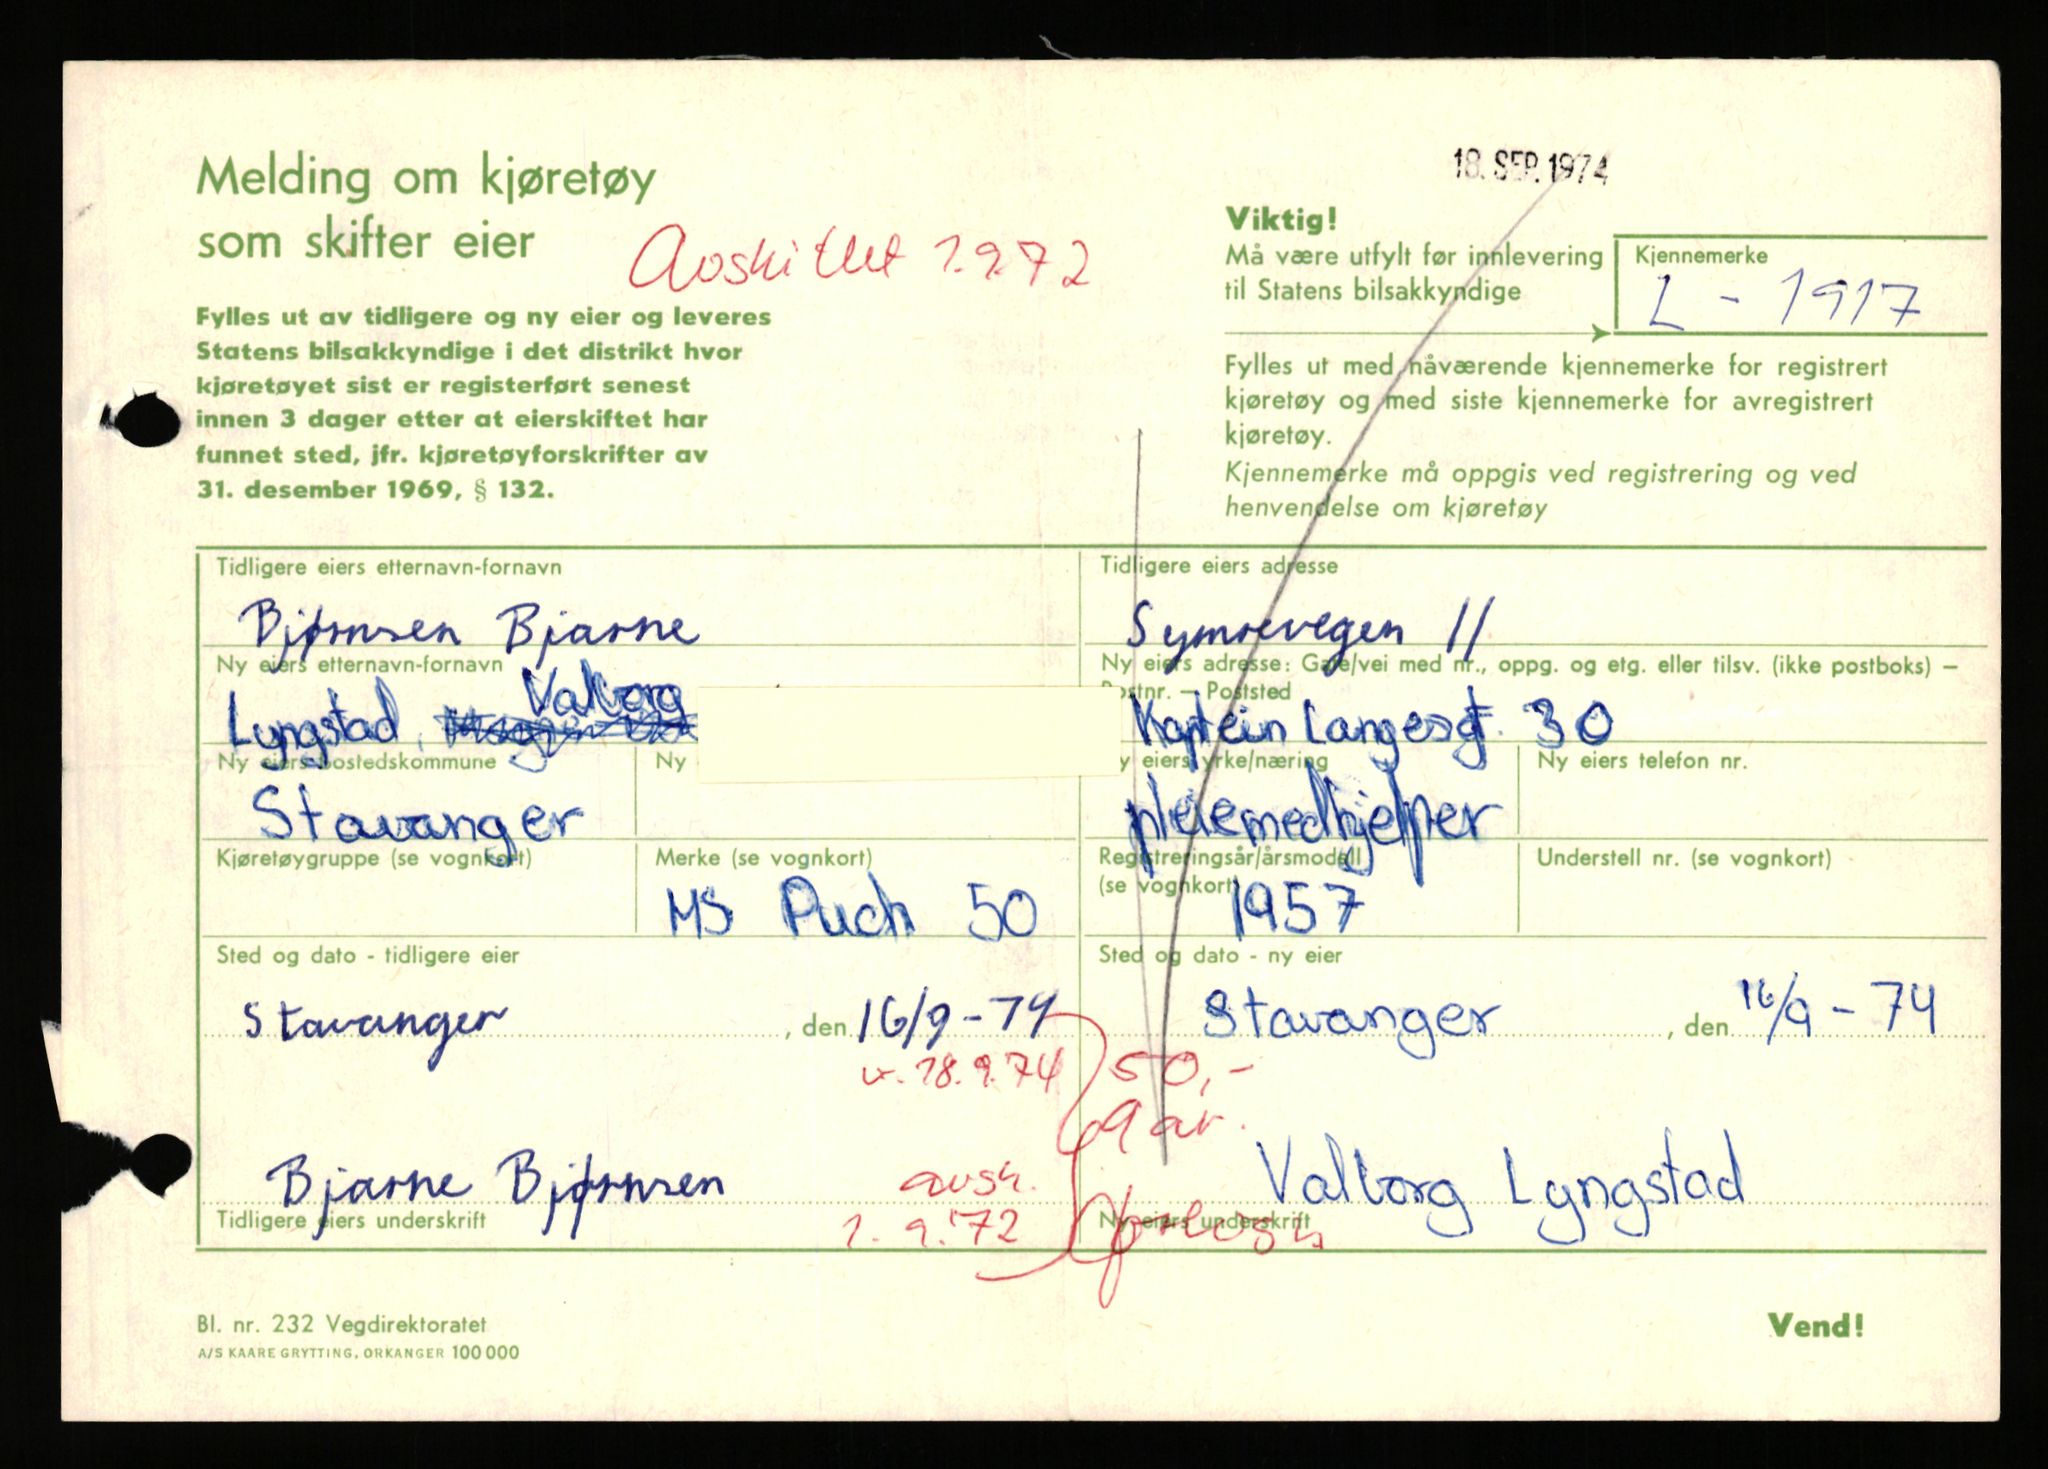 Melding om kjøretøy
som skifter eier
Avskiltet 1.9.72
18. SEP. 1974
Fylles ut av tidligere og ny eier og leveres
Statens bilsakkyndige i det distrikt hvor
kjøretøyet sist er registerført senest
innen 3 dager etter at eierskiftet har
funnet sted, jfr. kjøretøyforskrifter av
31. desember 1969, § 132.
Viktig!
Må være utfylt før innlevering
til Statens bilsakkyndige
Kjennemerke
L - 1917
Fylles ut med nåværende kjennemerke for registrert
kjøretøy og med siste kjennemerke for avregistrert
kjøretøy.
Kjennemerke må oppgis ved registrering og ved
henvendelse om kjøretøy
Tidligere eiers etternavn-fornavn
Bjørnsen Bjarne
Tidligere eiers adresse
Symrevegen 11
Ny eiers etternavn-fornavn
Lyngstad, Valborg
Ny eiers adresse: Gate/vei med nr., oppg. og etg. eller tilsv. (ikke postboks) –
Postnr. – Poststed
Kaptein Langesgt. 30
Ny eiers bostedskommune
Stavanger
Ny
Ny eiers yrke/næring
pleiemedhjelper
Ny eiers telefon nr.
Kjøretøygruppe (se vognkort)
Merke (se vognkort)
MS Puch 50
Registreringsår/årsmodell
(se vognkort)
1957
Understell nr. (se vognkort)
Sted og dato - tidligere eier
Stavanger, den 16/9-74
Sted og dato - ny eier
Stavanger, den 16/9-74
18.9.74
50,-
9 ar.
Bjarne Bjørnsen
avsk.
1.9.72
Tidligere eiers underskrift
Valborg Lyngstad
Ny eiers underskrift
Bl. nr. 232 Vegdirektoratet
A/S KAARE GRYTTING, ORKANGER 100 000
Vend!